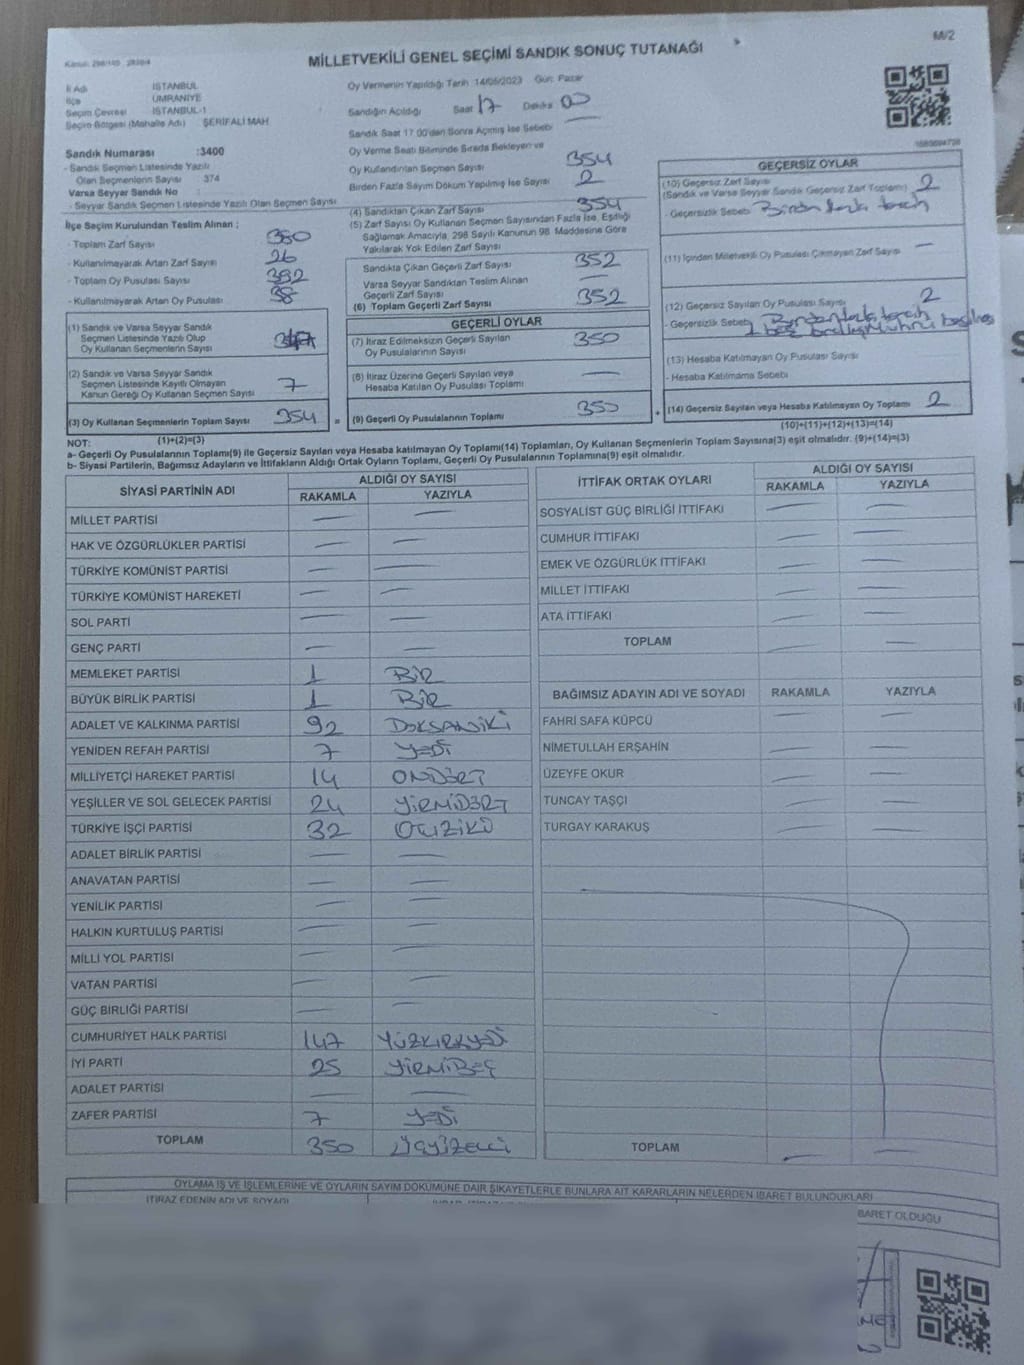 M/2
MİLLETVEKİLİ GENEL SEÇİMİ SANDIK SONUÇ TUTANAĞI
İl Adı İSTANBUL
İlçe ÜMRANİYE
Seçim Çevresi İSTANBUL-1
Seçim Bölgesi (Mahalle Adı) : ŞERİFALİ MAH
Sandık Numarası :3400
- Sandık Seçmen Listesinde Yazılı
Olan Seçmenlerin Sayısı : 374
Varsa Seyyar Sandık No :
- Seyyar Sandık Seçmen Listesinde Yazılı Olan Seçmen Sayısı
İlçe Seçim Kurulundan Teslim Alınan ;
- Toplam Zarf Sayısı 380
- Kullanılmayarak Artan Zarf Sayısı 26
- Toplam Oy Pusulası Sayısı 392
- Kullanılmayarak Artan Oy Pusulası 38
(1) Sandık ve Varsa Seyyar Sandık
Seçmen Listesinde Yazılı Olup
Oy Kullanan Seçmenlerin Sayısı
(2) Sandık ve Varsa Seyyar Sandık
Seçmen Listesinde Kayıtlı Olmayan
Kanun Gereği Oy Kullanan Seçmen Sayısı 7
(3) Oy Kullanan Seçmenlerin Toplam Sayısı 354 =
(1)+(2)=(3)
Oy Vermenin Yapıldığı Tarih 14/05/2023 Gün: Pazar
Sandığın Açıldığı Saat 17 Dakika 00
Sandık Saat 17:00'dan Sonra Açılmış İse Sebebi
Oy Verme Saati Bitiminde Sırada Bekleyen ve
Oy Kullandırılan Seçmen Sayısı 354
Birden Fazla Sayım Döküm Yapılmış İse Sayısı 2
(4) Sandıktan Çıkan Zarf Sayısı 354
(5) Zarf Sayısı Oy Kullanan Seçmen Sayısından Fazla İse, Eşitliği
Sağlamak Amacıyla, 298 Sayılı Kanunun 98. Maddesine Göre
Yakılarak Yok Edilen Zarf Sayısı
Sandıkta Çıkan Geçerli Zarf Sayısı 352
Varsa Seyyar Sandıktan Teslim Alınan
Geçerli Zarf Sayısı —
(6) Toplam Geçerli Zarf Sayısı 352
GEÇERLİ OYLAR
(7) İtiraz Edilmeksizin Geçerli Sayılan
Oy Pusulalarının Sayısı 350
(8) İtiraz Üzerine Geçerli Sayılan veya
Hesaba Katılan Oy Pusulası Toplamı —
(9) Geçerli Oy Pusulalarının Toplamı 350 +
GEÇERSİZ OYLAR
(10) Geçersiz Zarf Sayısı
(Sandık ve Varsa Seyyar Sandık Geçersiz Zarf Toplamı) 2
- Geçersizlik Sebebi Birden fazla tercih
(11) İçinden Milletvekili Oy Pusulası Çıkmayan Zarf Sayısı —
(12) Geçersiz Sayılan Oy Pusulası Sayısı 2
- Geçersizlik Sebebi Birden fazla tercih
(13) Hesaba Katılmayan Oy Pusulası Sayısı
- Hesaba Katılmama Sebebi
(14) Geçersiz Sayılan veya Hesaba Katılmayan Oy Toplamı 2
(10)+(11)+(12)+(13)=(14)
NOT:
a- Geçerli Oy Pusulalarının Toplamı(9) ile Geçersiz Sayılan veya Hesaba katılmayan Oy Toplamı(14) Toplamları, Oy Kullanan Seçmenlerin Toplam Sayısına(3) eşit olmalıdır. (9)+(14)=(3)
b- Siyasi Partilerin, Bağımsız Adayların ve İttifakların Aldığı Ortak Oyların Toplamı, Geçerli Oy Pusulalarının Toplamına(9) eşit olmalıdır.
SİYASİ PARTİNİN ADI ALDIĞI OY SAYISI
RAKAMLA YAZIYLA
MİLLET PARTİSİ — —
HAK VE ÖZGÜRLÜKLER PARTİSİ — —
TÜRKİYE KOMÜNİST PARTİSİ — —
TÜRKİYE KOMÜNİST HAREKETİ — —
SOL PARTİ — —
GENÇ PARTİ — —
MEMLEKET PARTİSİ 1 BİR
BÜYÜK BİRLİK PARTİSİ 1 BİR
ADALET VE KALKINMA PARTİSİ 92 DOKSANİKİ
YENİDEN REFAH PARTİSİ 7 YEDİ
MİLLİYETÇİ HAREKET PARTİSİ 14 ONDÖRT
YEŞİLLER VE SOL GELECEK PARTİSİ 24 YİRMİDÖRT
TÜRKİYE İŞÇİ PARTİSİ 32 OTUZİKİ
ADALET BİRLİK PARTİSİ — —
ANAVATAN PARTİSİ — —
YENİLİK PARTİSİ — —
HALKIN KURTULUŞ PARTİSİ — —
MİLLİ YOL PARTİSİ — —
VATAN PARTİSİ — —
GÜÇ BİRLİĞİ PARTİSİ — —
CUMHURİYET HALK PARTİSİ 147 YÜZKIRKYEDİ
İYİ PARTİ 25 YİRMİBEŞ
ADALET PARTİSİ — —
ZAFER PARTİSİ 7 YEDİ
TOPLAM 350 ÜÇYÜZELLİ
İTTİFAK ORTAK OYLARI ALDIĞI OY SAYISI
RAKAMLA YAZIYLA
SOSYALİST GÜÇ BİRLİĞİ İTTİFAKI — —
CUMHUR İTTİFAKI — —
EMEK VE ÖZGÜRLÜK İTTİFAKI — —
MİLLET İTTİFAKI — —
ATA İTTİFAKI — —
TOPLAM — —
BAĞIMSIZ ADAYIN ADI VE SOYADI RAKAMLA YAZIYLA
FAHRİ SAFA KÜPCÜ — —
NİMETULLAH ERŞAHİN — —
ÜZEYFE OKUR — —
TUNCAY TAŞÇI — —
TURGAY KARAKUŞ — —
TOPLAM — —
OYLAMA İŞ VE İŞLEMLERİNE VE OYLARIN SAYIM DÖKÜMÜNE DAİR ŞİKAYETLERLE BUNLARA AİT KARARLARIN NELERDEN İBARET BULUNDUKLARI
İTİRAZ EDENİN ADI VE SOYADI
BARET OLDUĞU